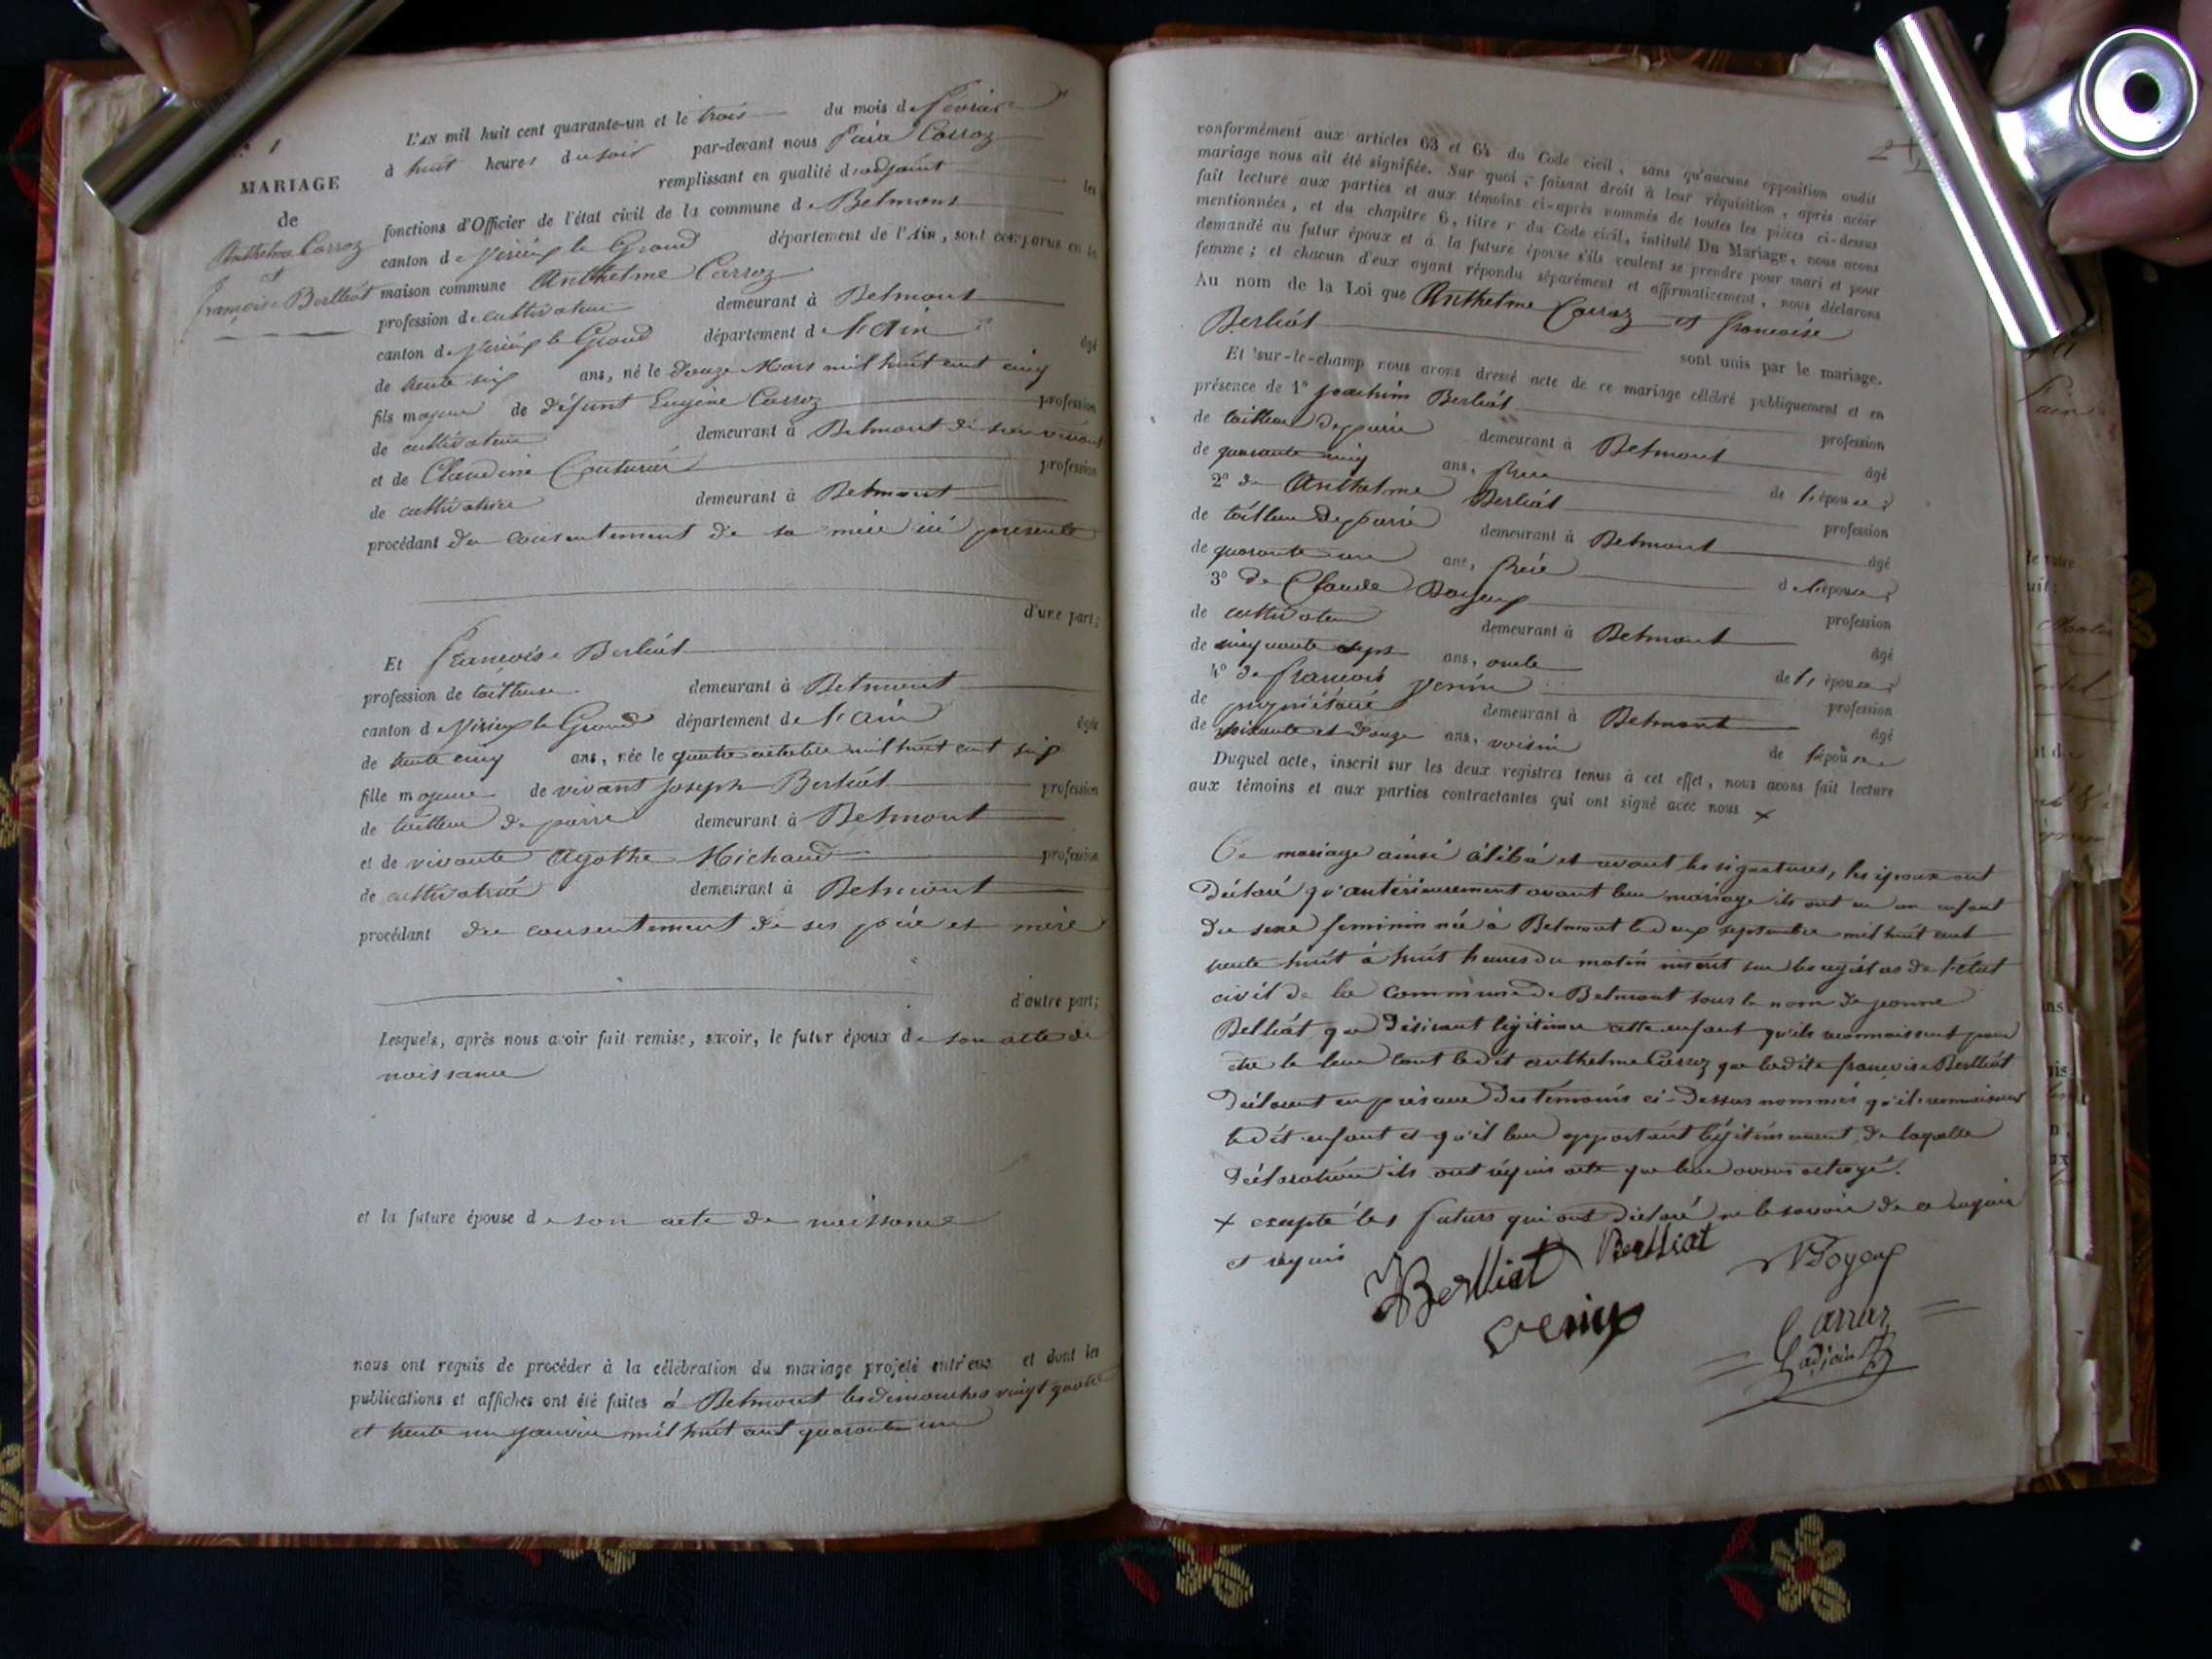 1
MARIAGE
de
Anthelme Carroz
et
françoise Berlliat
L'AN mil huit cent quarante-un et le trois du mois de février
à huit heures du soir par-devant nous Carroz
remplissant en qualité d'adjoint les
fonctions d'Officier de l'état civil de la commune de Belmont
canton de Virieux le Grand département de l'Ain, sont comparus en la
maison commune Anthelme Carroz
profession de cultivateur demeurant à Belmont
canton de Virieux le Grand département de l'Ain âgé
de trente six ans, né le douze Mars mil huit cent cinq
fils majeur de défunt Eugène Carroz profession
de cultivateur demeurant à Belmont de son vivant
et de Claudine Couturier profession
de cultivatrice demeurant à Belmont
procédant du consentement de sa mère ici présente
d'une part;
Et françoise Berliat
profession de tailleuse demeurant à Belmont
canton de Virieux le Grand département de l'Ain âgée
de trente cinq ans, née le quatre octobre mil huit cent six
fille majeure de vivant Joseph Berliat profession
de tailleur de pierre demeurant à Belmont
et de vivante Agathe Michaud profession
de cultivatrice demeurant à Belmont
procédant du consentement de ses père et mère
d'autre part;
Lesquels, après nous avoir fait remise, savoir, le futur époux de son acte de
naissance
et la future épouse de son acte de naissance
nous ont requis de procéder à la célébration du mariage projeté entr'eux et dont les
publications et affiches ont été faites à Belmont les dimanches vingt quatre
et trente un janvier mil huit cent quarante un
conformément aux articles 63 et 64 du Code civil, sans qu'aucune opposition audit
mariage nous ait été signifiée. Sur quoi, faisant droit à leur réquisition, après avoir
fait lecture aux parties et aux témoins ci-après nommés de toutes les pièces ci-dessus
mentionnées, et du chapitre 6, titre v du Code civil, intitulé Du Mariage, nous avons
demandé au futur époux et à la future épouse s'ils veulent se prendre pour mari et pour
femme; et chacun d'eux ayant répondu séparément et affirmativement, nous déclarons
Au nom de la Loi que Anthelme Carroz et françoise
Berliat sont unis par le mariage.
Et sur-le-champ nous avons dressé acte de ce mariage célébré publiquement et en
présence de 1° Joachim Berliat profession
de tailleur de pierre demeurant à Belmont âgé
de quarante cinq ans, frère de l'épouse;
2° de Anthelme Berliat profession
de tailleur de pierre demeurant à Belmont âgé
de quarante un ans, frère de l'épouse;
3° de Claude Boyeux profession
de cultivateur demeurant à Belmont âgé
de cinquante sept ans, oncle de l'épouse;
4° de françois Venin profession
de propriétaire demeurant à Belmont âgé
de soixante et douze ans, voisin de l'épouse
Duquel acte, inscrit sur les deux registres tenus à cet effet, nous avons fait lecture
aux témoins et aux parties contractantes qui ont signé avec nous x
Ce mariage ainsi célébré et avant les signatures, les époux ont
déclaré qu'antérieurement avant leur mariage ils ont eu un enfant
du sexe feminin née à Belmont le deux septembre mil huit cent
trente huit à huit heures du matin inscrit sur les registres de l'état
civil de la Commune de Belmont sous le nom de jeanne
Belliat que désirant légitimer cette enfant qu'ils reconnaissent pour
être le leur tant ledit anthelme Carroz que ladite françoise Berlliat
déclarent en présence des témoins ci-dessus nommés qu'ils reconnaissent
ledit enfant et qu'il leur appartient légitimement, de laquelle
déclaration ils ont réquis acte que leur avons octroyé.
x excepté les futurs qui ont déclaré ne le savoir de ce enquis
et requis
Berlliat Berlliat Boyeux
Venin
Carraz
adjoint